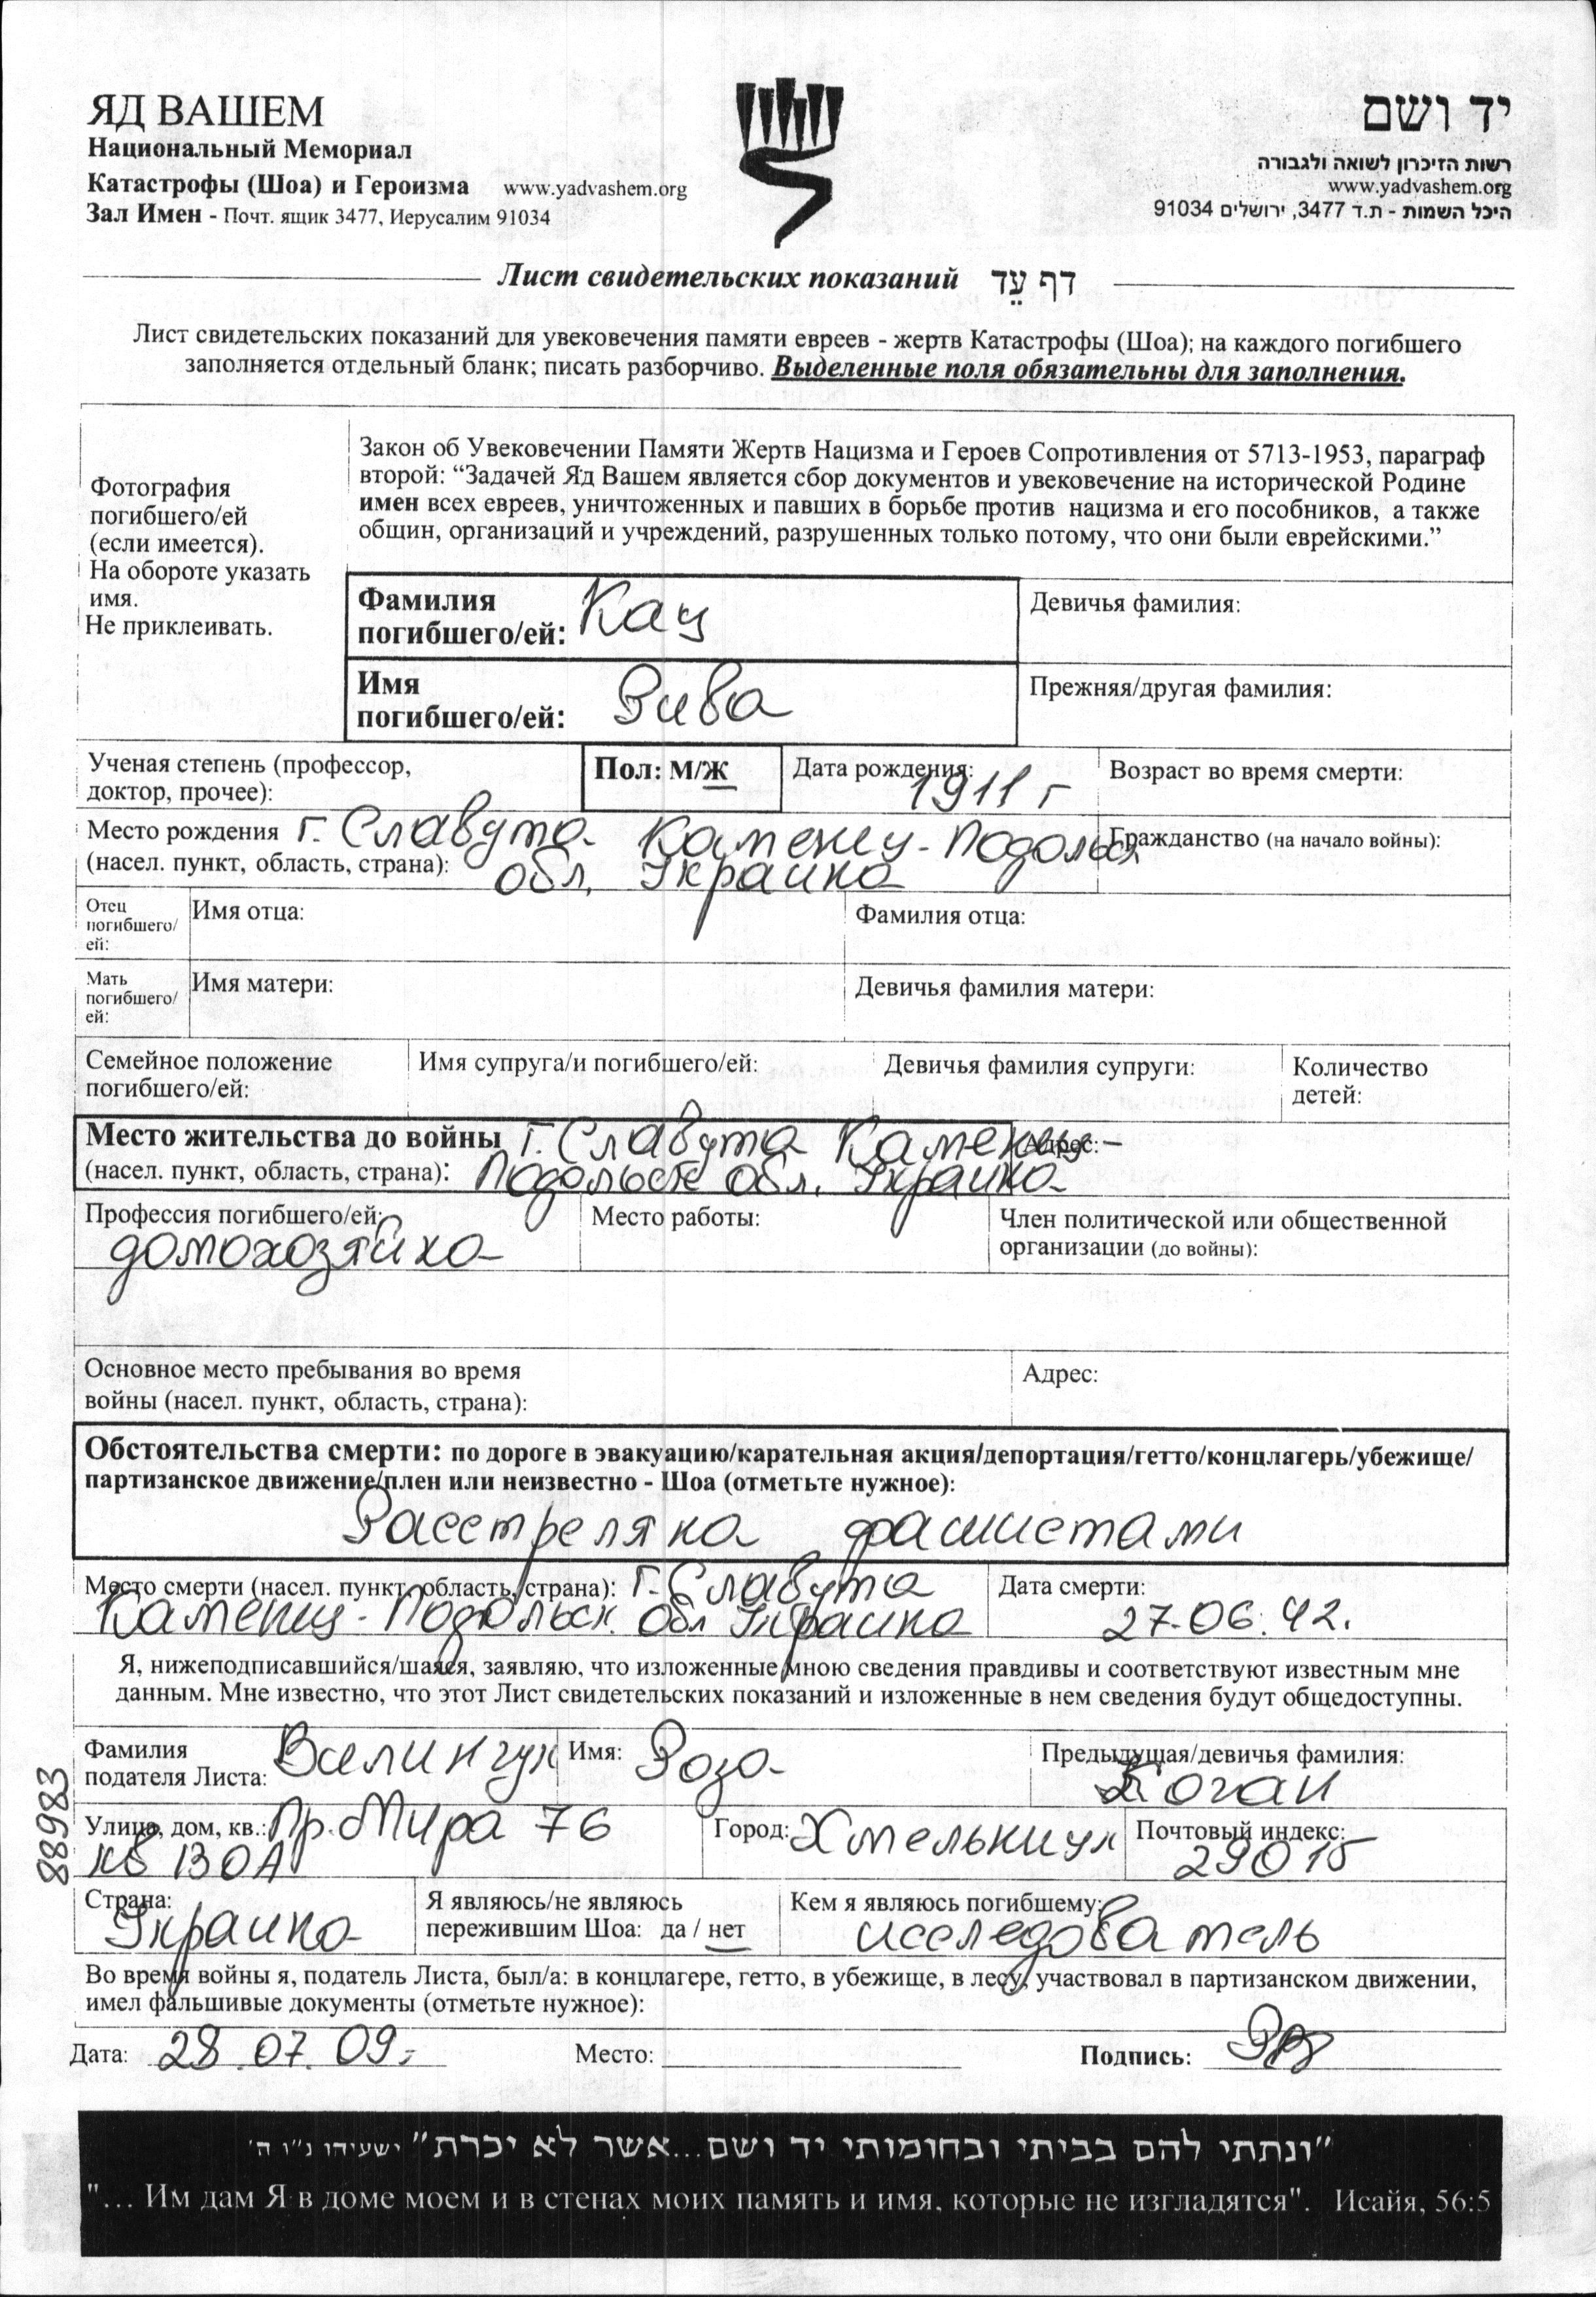 ЯД ВАШЕМ
Национальный Мемориал
Катастрофы (Шоа) и Героизма www.yadvashem.org
Зал Имен - Почт. ящик 3477, Иерусалим 91034
יד ושם
רשות הזיכרון לשואה ולגבורה
www.yadvashem.org
היכל השמות - ת.ד 3477, ירושלים 91034
Лист свидетельских показаний דף עֵד
Лист свидетельских показаний для увековечения памяти евреев - жертв Катастрофы (Шоа); на каждого погибшего
заполняется отдельный бланк; писать разборчиво. Выделенные поля обязательны для заполнения.
Фотография
погибшего/ей
(если имеется).
На обороте указать
имя.
Не приклеивать.
Закон об Увековечении Памяти Жертв Нацизма и Героев Сопротивления от 5713-1953, параграф
второй: “Задачей Яд Вашем является сбор документов и увековечение на исторической Родине
имен всех евреев, уничтоженных и павших в борьбе против нацизма и его пособников, а также
общин, организаций и учреждений, разрушенных только потому, что они были еврейскими.”
Фамилия
погибшего/ей: Кац
Девичья фамилия:
Имя
погибшего/ей: Рива
Прежняя/другая фамилия:
Ученая степень (профессор,
доктор, прочее):
Пол: М/Ж
Дата рождения: 1911 г
Возраст во время смерти:
Место рождения г. Славута Каменец-Подольск
(насел. пункт, область, страна): обл. Украина
Гражданство (на начало войны):
Отец
погибшего/
ей:
Имя отца:
Фамилия отца:
Мать
погибшего/
ей:
Имя матери:
Девичья фамилия матери:
Семейное положение
погибшего/ей:
Имя супруга/и погибшего/ей:
Девичья фамилия супруги:
Количество
детей:
Место жительства до войны г. Славута Каменец-
(насел. пункт, область, страна): Подольск обл. Украина
Адрес:
Профессия погибшего/ей:
домохозяйка
Место работы:
Член политической или общественной
организации (до войны):
Основное место пребывания во время
войны (насел. пункт, область, страна):
Адрес:
Обстоятельства смерти: по дороге в эвакуацию/карательная акция/депортация/гетто/концлагерь/убежище/
партизанское движение/плен или неизвестно - Шоа (отметьте нужное):
Расстреляна фашистами
Место смерти (насел. пункт, область, страна): г. Славута
Каменец-Подольск. обл Украина
Дата смерти:
27.06.42.
Я, нижеподписавшийся/шаяся, заявляю, что изложенные мною сведения правдивы и соответствуют известным мне
данным. Мне известно, что этот Лист свидетельских показаний и изложенные в нем сведения будут общедоступны.
Фамилия
подателя Листа: Вилинчук
Имя: Роза
Предыдущая/девичья фамилия:
Коган
Улица, дом, кв.: Пр. Мира 76
кв 130А
Город: Хмельницк
Почтовый индекс:
29015
Страна:
Украина
Я являюсь/не являюсь
пережившим Шоа: да / нет
Кем я являюсь погибшему:
исследователь
Во время войны я, податель Листа, был/а: в концлагере, гетто, в убежище, в лесу, участвовал в партизанском движении,
имел фальшивые документы (отметьте нужное):
Дата: 28.07.09.
Место:
Подпись:
88983
"ונתתי להם בביתי ובחומותי יד ושם...אשר לא יכרת" ישעיהו נ"ו ה'
"... Им дам Я в доме моем и в стенах моих память и имя, которые не изгладятся". Исайя, 56:5